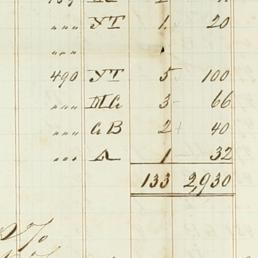 „„ YT 1 20
„„
490 YT 5 100
„„ MG 3 66
„„ GB 2 40
„„ A 1 32
133 2,930